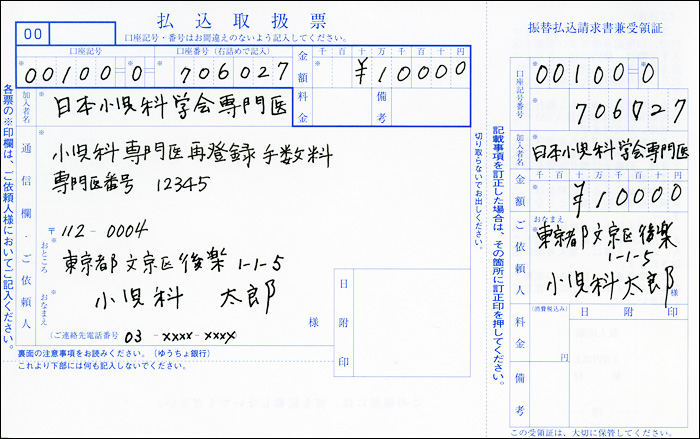 払込取扱票
00
口座記号・番号はお間違えのないよう記入してください。
口座記号 口座番号(右詰めで記入) 金額 千 百 十 万 千 百 十 円
00100 0 706027 ¥10000
加入者名 日本小児科学会専門医 料金 備考
各票の※印欄は、ご依頼人様においてご記入ください。
通信欄・ご依頼人
小児科専門医再登録手数料
専門医番号 12345
〒 112-0004
おところ 東京都文京区後楽 1-1-5
おなまえ 小児科 太郎 様
(ご連絡先電話番号 03-xxxx-xxxx
日附印
裏面の注意事項をお読みください。(ゆうちょ銀行)
これより下部には何も記入しないでください。
切り取らないでお出しください。
記載事項を訂正した場合は、その箇所に訂正印を押してください。
振替払込請求書兼受領証
口座記号番号 00100 0
706027
加入者名 日本小児科学会専門医
金額 千 百 十 万 千 百 十 円
¥10000
ご依頼人 おなまえ
東京都文京区後楽
1-1-5
小児科太郎 様
料金 (消費税込み) 円
日附印
備考
この受領証は、大切に保管してください。